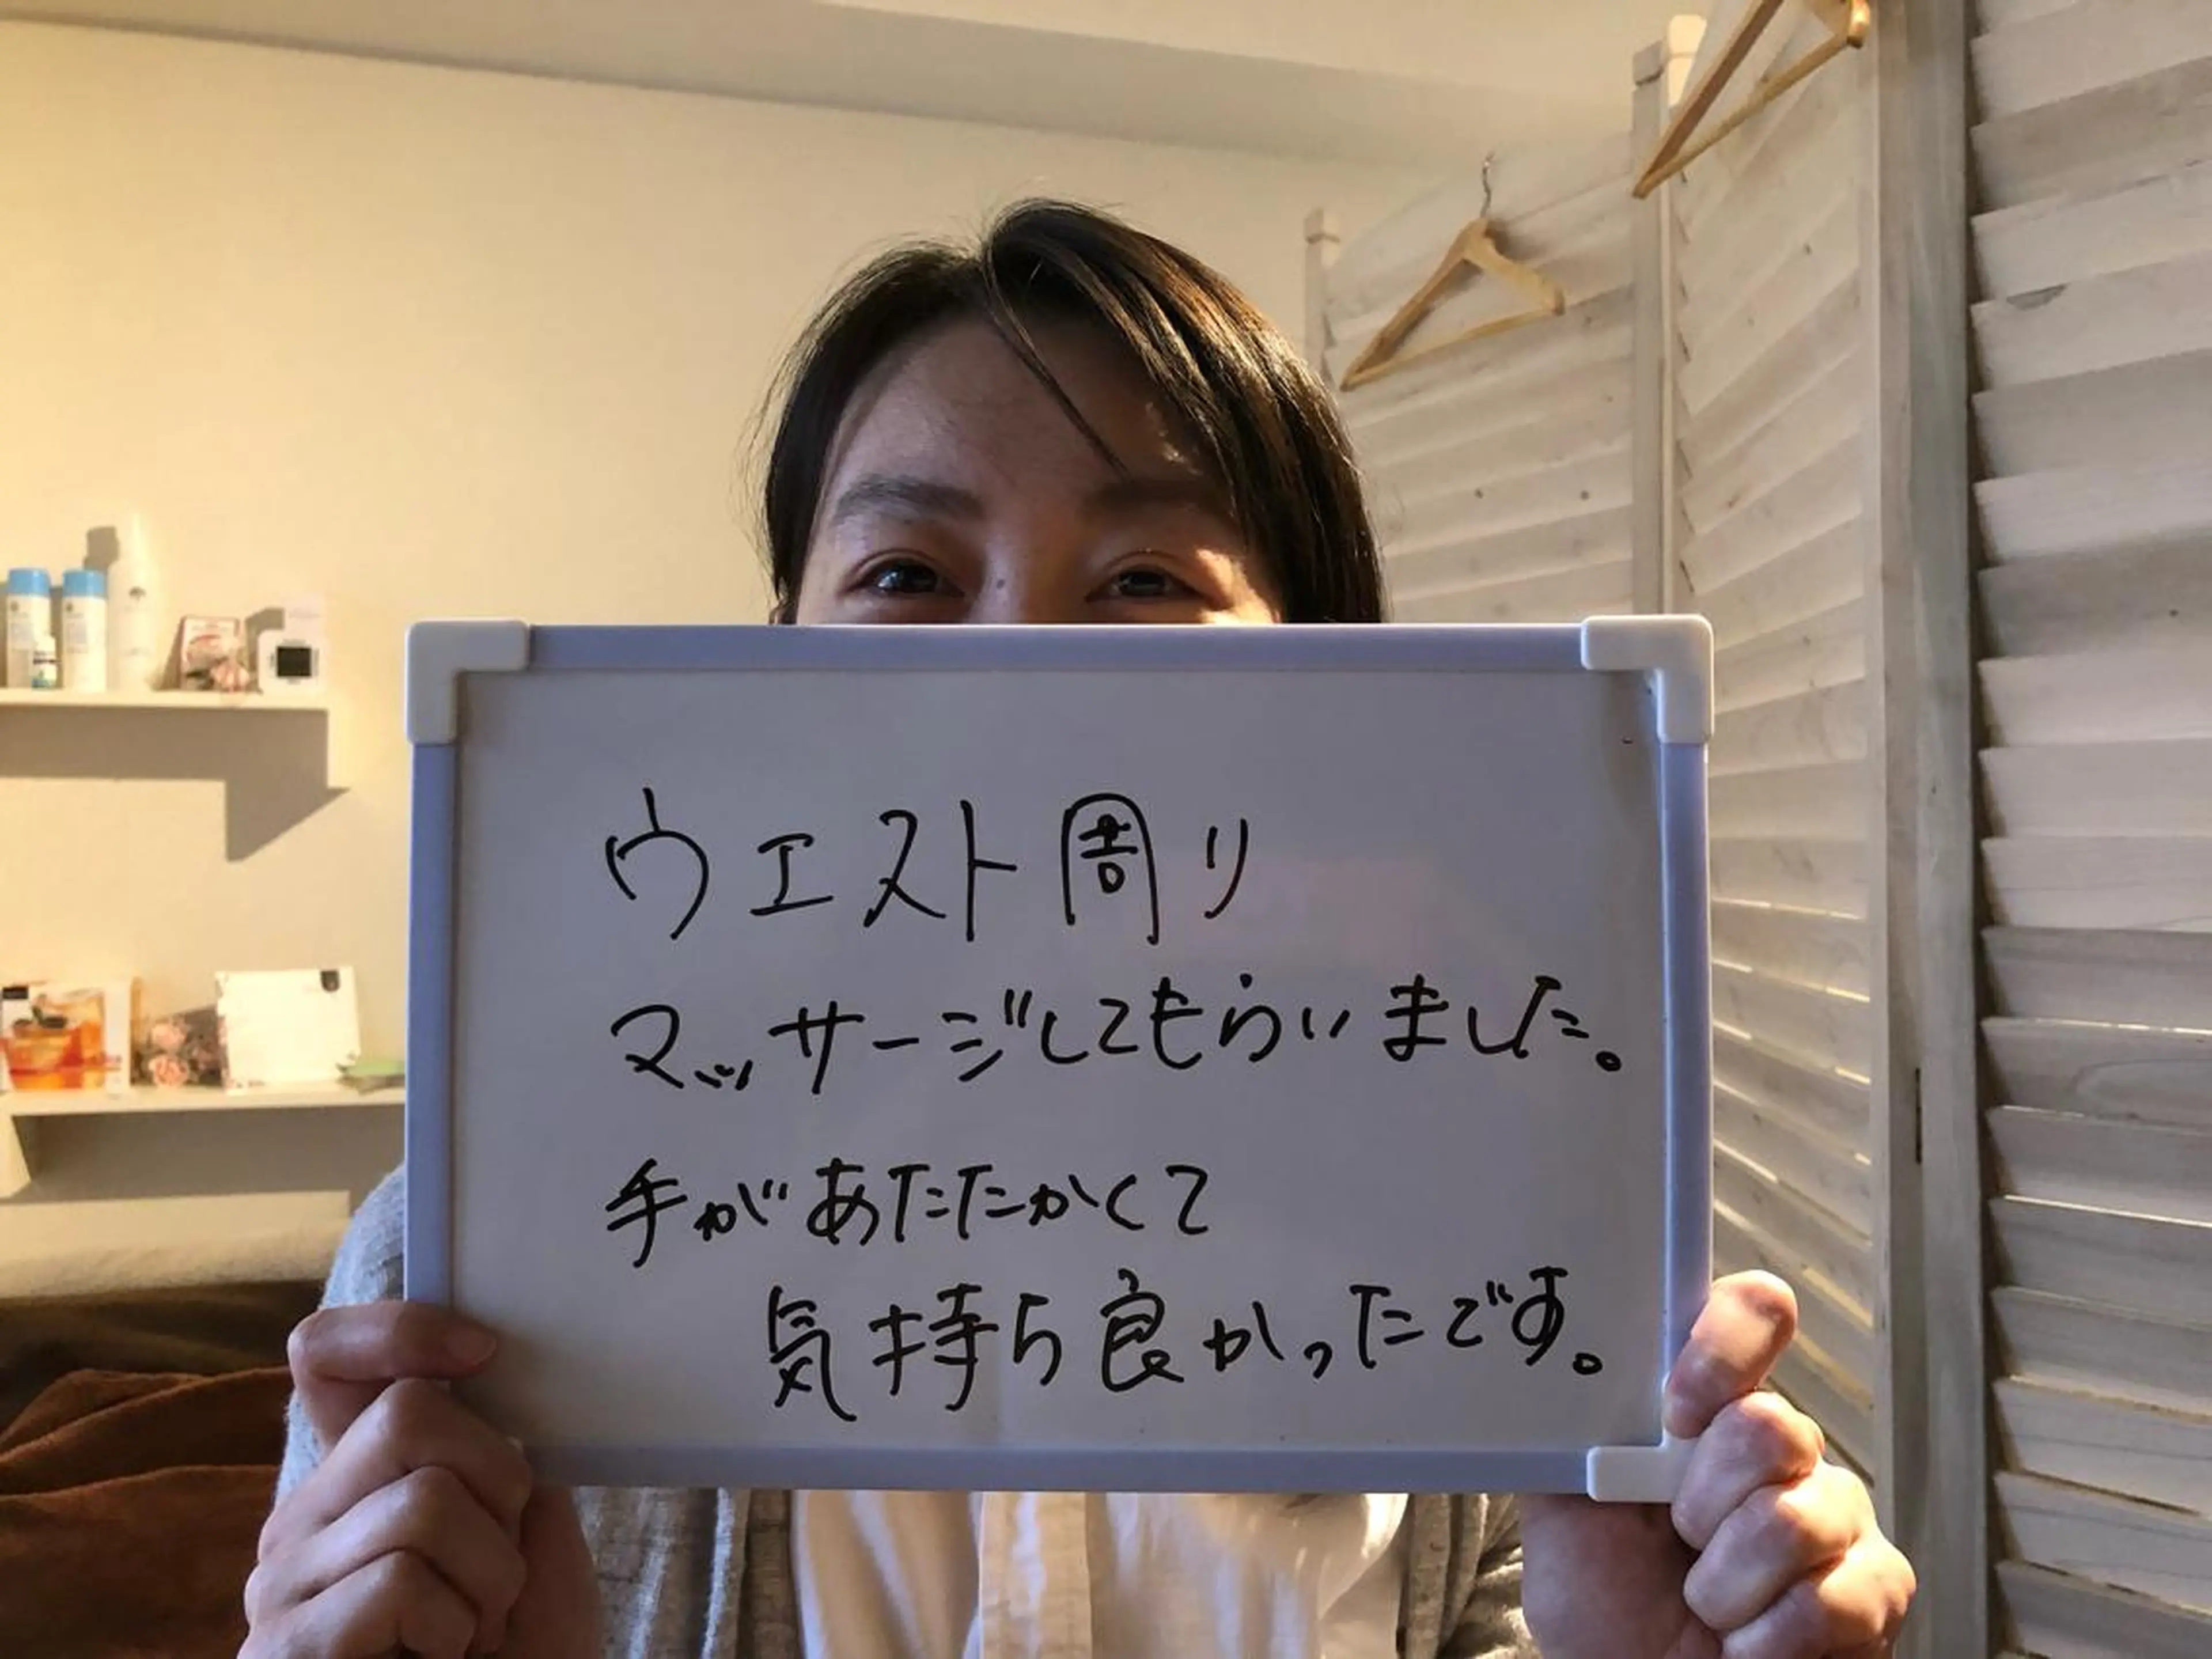 ウエスト周り
マッサージしてもらいました。
手があたたかくて
気持ち良かったです。